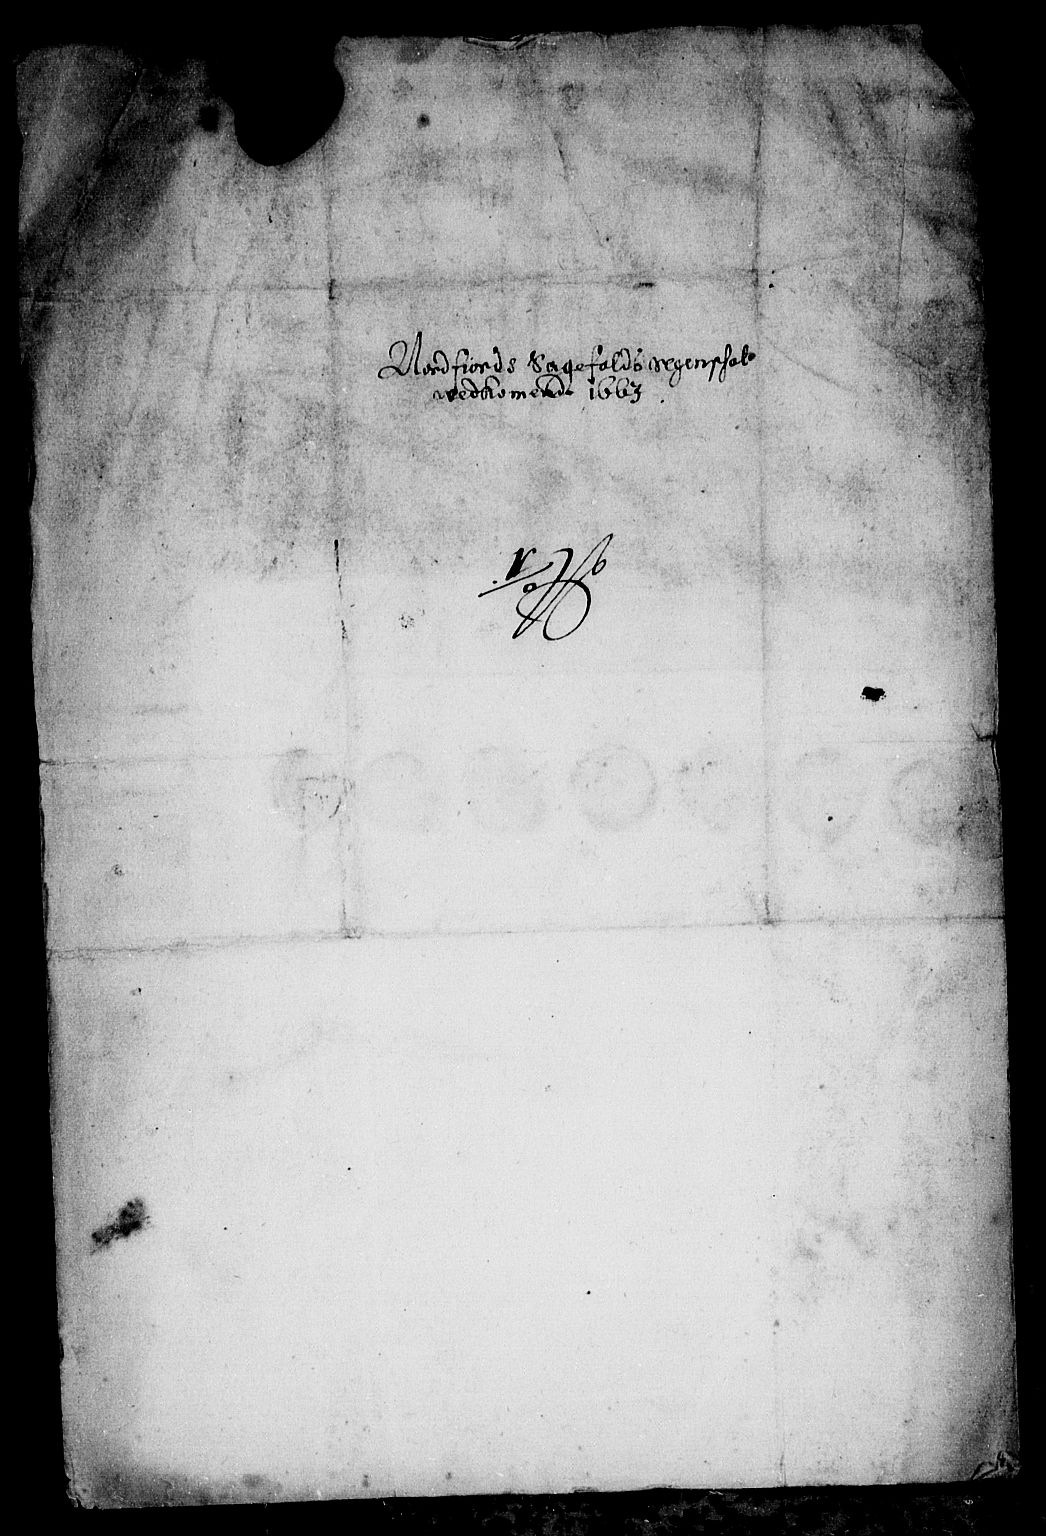 Nordfiords Sagefalds regenschab
wedkomende 1663